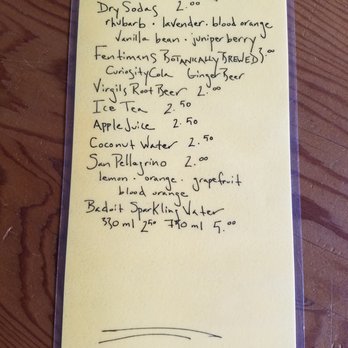 Dry Sodas 2.00
rhubarb · lavender · blood orange
vanilla bean · juniper berry
Fentimans BOTANICALLY BREWED 3.00
Curiosity Cola Ginger Beer
Virgils Root Beer 2.00
Ice Tea 2.50
Apple Juice 2.50
Coconut Water 2.50
San Pellegrino 2.00
lemon · orange · grapefruit
blood orange
Badoit Sparkling Water
330 ml 2.50 750 ml 5.00